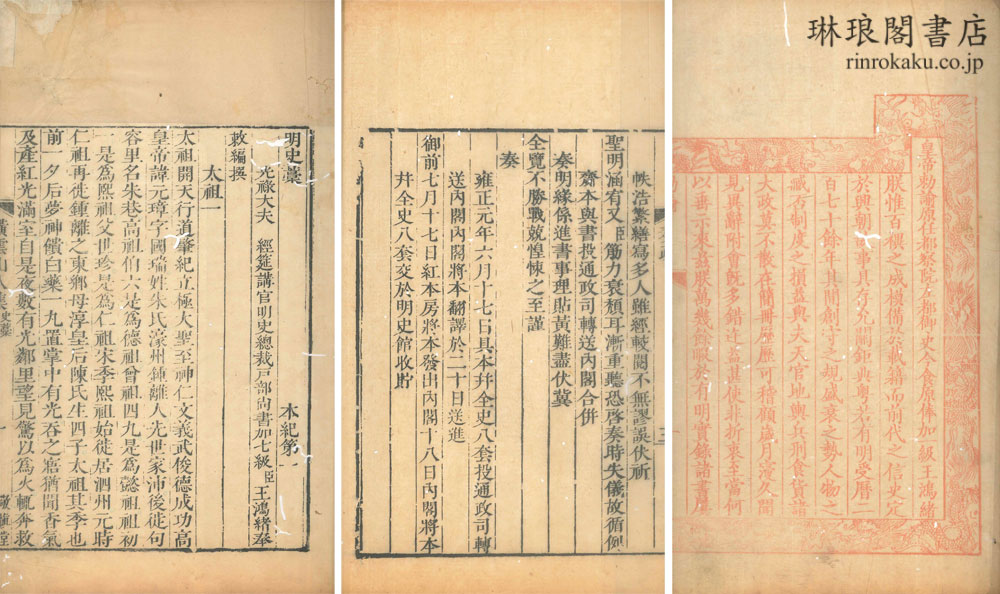 琳琅閣書店
rinrokaku.co.jp
皇帝勅諭原任都察院左都御史今食原俸加一級王鴻緒
朕惟百禩之成模備於載籍而前代之信史定
於興朝厥事甚有明受曆二
百七十餘年其間創守之規盛衰之勢人物之
臧否制度之損益與夫天官地輿兵刑食貨諸
大政莫不散在簡冊歷歷可稽顧歲月寖久聞
見異辭附會旣多錯迕甚使折衷至當何
以垂示來茲朕萬幾於有明實錄諸書
帙浩繁繕寫多人雖經較閱不無謬誤伏祈
聖明涵宥又臣筋力衰頹耳漸重聽恐啓奏時失儀故循例
齋本與書投通政司轉送內閣合併
奏明緣係進書事理貼黃難盡伏冀
全覽不勝戰兢惶悚之至謹
奏
雍正元年六月十七日具本幷全史八套投通政司轉
送內閣內閣將本翻譯於二十日送進
御前七月十七日紅本房將本發出內閣十八日內閣將本
幷全史八套交於明史館收貯
明史藁 本紀第一
光祿大夫 經筵講官明史總裁戸部尚書加七級臣王鴻緒奉
敕編撰
太祖一
太祖開天行道肇紀立極大聖至神仁文義武俊德成功高
皇帝諱元璋字國瑞姓朱氏濠州鍾離人先世家沛後徙句
容里名朱巷高祖伯六是爲德祖曾祖四九是爲懿祖祖初
一是爲熙祖父世珍是爲仁祖宋季熙祖始徙居泗州元時
仁祖再徙鍾離之東鄉母淳皇后陳氏生四子太祖其季也
前一夕后夢神饋白藥一丸置掌中有光吞之寤猶聞香氣
及產紅光滿室自是夜數有光鄰里望見驚以爲火輒奔救
橫雲山人集史藁
一
敬愼堂